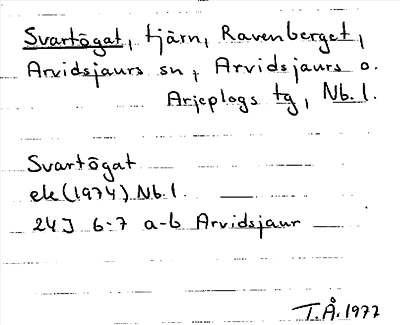 Svartögat, tjärn, Ravenberget,
Arvidsjaurs sn, Arvidsjaurs o.
Arjeplogs tg, Nb. l.
Svartögat
ek (1974) Nb. l.
24J 6-7 a-b Arvidsjaur
T.Å. 1977